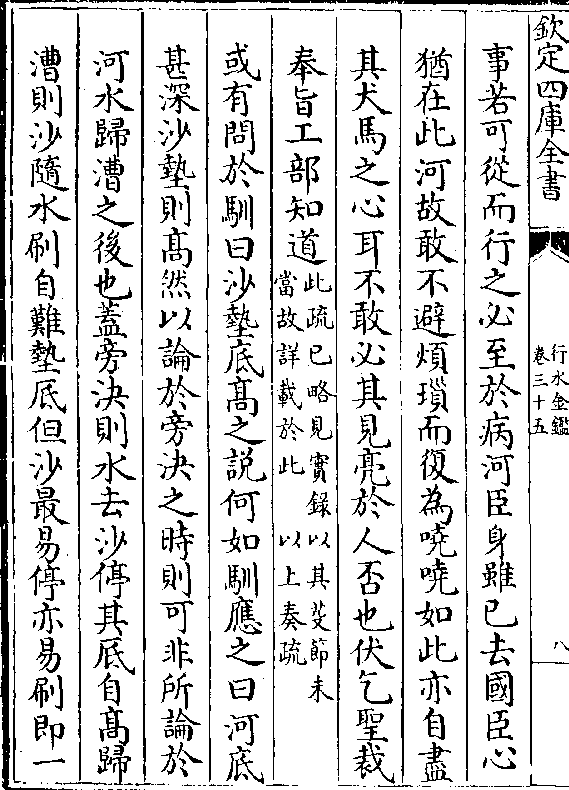 欽定四庫全書
行水金鑑
卷三十五
八
事若可從而行之必至於病河臣身雖已去國臣心
猶在此河故敢不避煩瑣而復為嘵嘵如此亦自盡
其犬馬之心耳不敢必其見亮於人否也伏乞聖裁
奉旨工部知道此疏已略見實録以其芟節未
當故詳載於此　以上奏疏
或有問於馴曰沙墊底髙之説何如馴應之曰河底
甚深沙墊則髙然以論於旁決之時則可非所論於
河水歸漕之後也蓋旁決則水去沙停其底自髙歸
漕則沙隨水刷自難墊底但沙最易停亦易刷即一